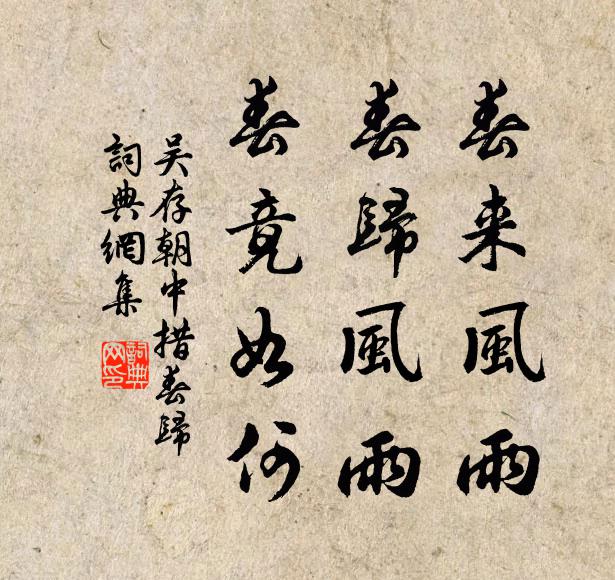 春来風雨
春歸風雨
春竟如何
吴存朝中措春歸
詞典網集
詞典网印